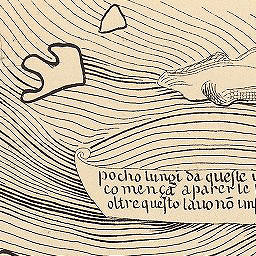 pocho lungi da queste i
començã aparer le
oltre questo lauo nõ